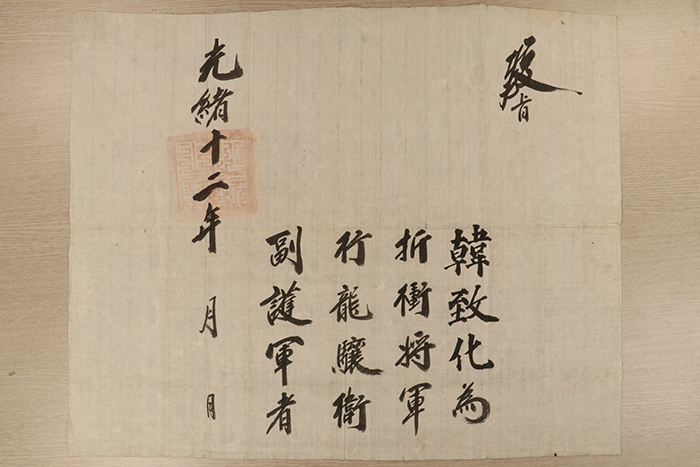 敎旨
韓致化為
折衝將軍
行龍驤衛
副護軍者
光緒十二年 月 日